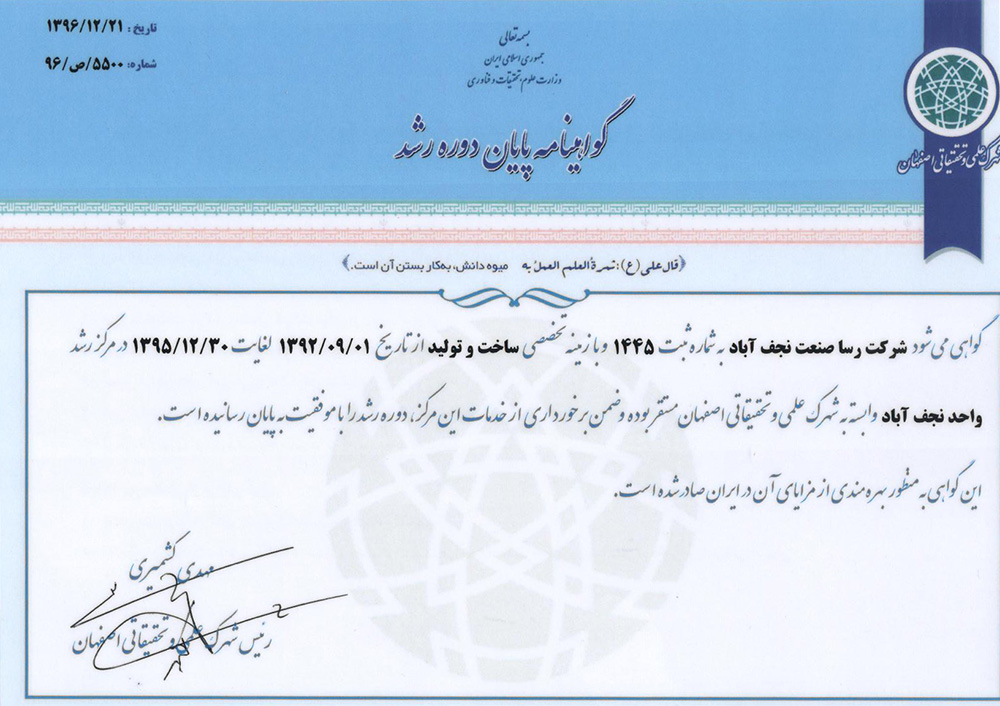 تاریخ: ۱۳۹۶/۱۲/۲۱
شماره: ۵۵۰۰/ص/۹۶
بسمه تعالی
جمهوری اسلامی ایران
وزارت علوم، تحقیقات و فناوری
گواهینامه پایان دوره رشد
شهرک علمی و تحقیقاتی اصفهان
﴿قال علی (ع): ثمرةُ العلمِ العملُ به   میوه دانش، به‌کار بستن آن است.﴾
گواهی می شود شرکت رسا صنعت نجف آباد به شماره ثبت ۱۴۴۵ و با زمینه تخصصی ساخت و تولید از تاریخ ۱۳۹۲/۰۹/۰۱ لغایت ۱۳۹۵/۱۲/۳۰ در مرکز رشد
واحد نجف آباد وابسته به شهرک علمی و تحقیقاتی اصفهان مستقر بوده و ضمن برخورداری از خدمات این مرکز، دوره رشد را با موفقیت به پایان رسانیده است.
این گواهی به منظور بهره مندی از مزایای آن در ایران صادر شده است.
مهدی کشمیری
رئیس شهرک علمی و تحقیقاتی اصفهان